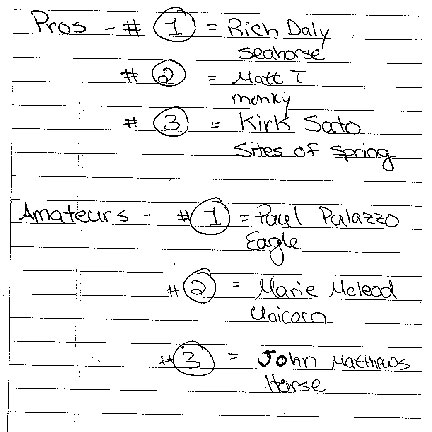 Pros - # 1 = Rich Daly
seahorse
# 2 = Matt T
monky
# 3 = Kirk Sato
Sites of spring
Amateurs - # 1 = Paul Palazzo
Eagle
# 2 = Marie Mcleod
Unicorn
# 3 = John Matthews
Horse